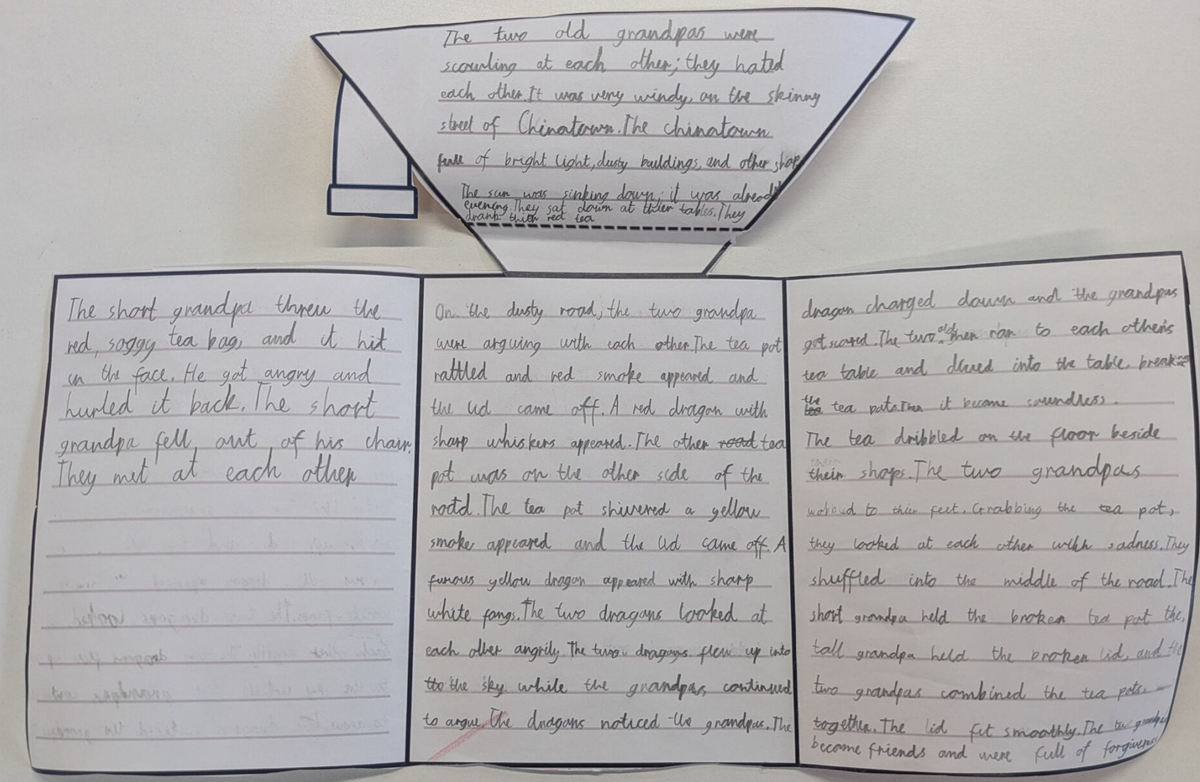 The two old grandpas were
scowling at each other; they hated
each other. It was very windy, on the skinny
street of Chinatown. The chinatown
full of bright light, dusty buildings, and other shop
The sun was sinking down; it was already
evening. They sat down at their tables. They
drank their red tea
The short grandpa threw the
red, soggy tea bag, and it hit
in the face. He got angry and
hurled it back. The short
grandpa fell out of his chair.
They met at each other
On the dusty road, the two grandpa
were arguing with each other. The tea pot
rattled and red smoke appeared and
the lid came off. A red dragon with
sharp whiskers appeared. The other road tea
pot was on the other side of the
roatd. The tea pot shivered a yellow
smoke appeared and the lid came off. A
furious yellow dragon appeared with sharp
white fangs. The two dragons looked at
each other angrily. The two dragons flew up into
the sky while the grandpas continued
to argue. The dragons noticed the grandpas. The
dragon charged down and the grandpas
got scared. The two old men ran to each others
tea table and dived into the table, break
the tea pots. Then it became soundless.
The tea dribbled on the floor beside
their shops. The two grandpas
to their feet. Grabbing the tea pot,
they looked at each other with sadness. They
shuffled into the middle of the road. The
short grandpa held the broken tea pot the,
tall grandpa held the broken lid, and the
two grandpas combined the tea pots
together. The lid fit smoothly. The two grandpas
became friends and were full of forgiveness